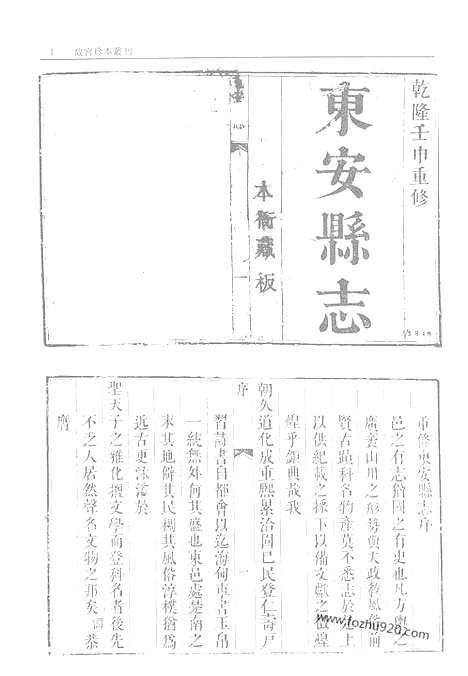 1 故宮珍本叢刊
乾隆壬申重修
東安縣志
本衙藏板
重修東安縣志序
邑之有志猶國之有史也凡方輿之
廣袤山川之形勢與夫政教風俗前
賢古蹟科名物產莫不悉志於上
以供紀載之採下以備文獻之徵煌
煌乎鉅典哉我
朝久道化成重熙累洽固已民登仁壽戶
序
習詩書自都會以迄海甸車書玉帛
一統無外何其盛也東邑處楚南之
末其地僻其民稠其風俗淳樸猶爲
近古更沐浴於
聖天子之雅化擅文學而登科名者後先
不乏人居然聲名文物之邦矣 恭
膺
www.fozhu920.com